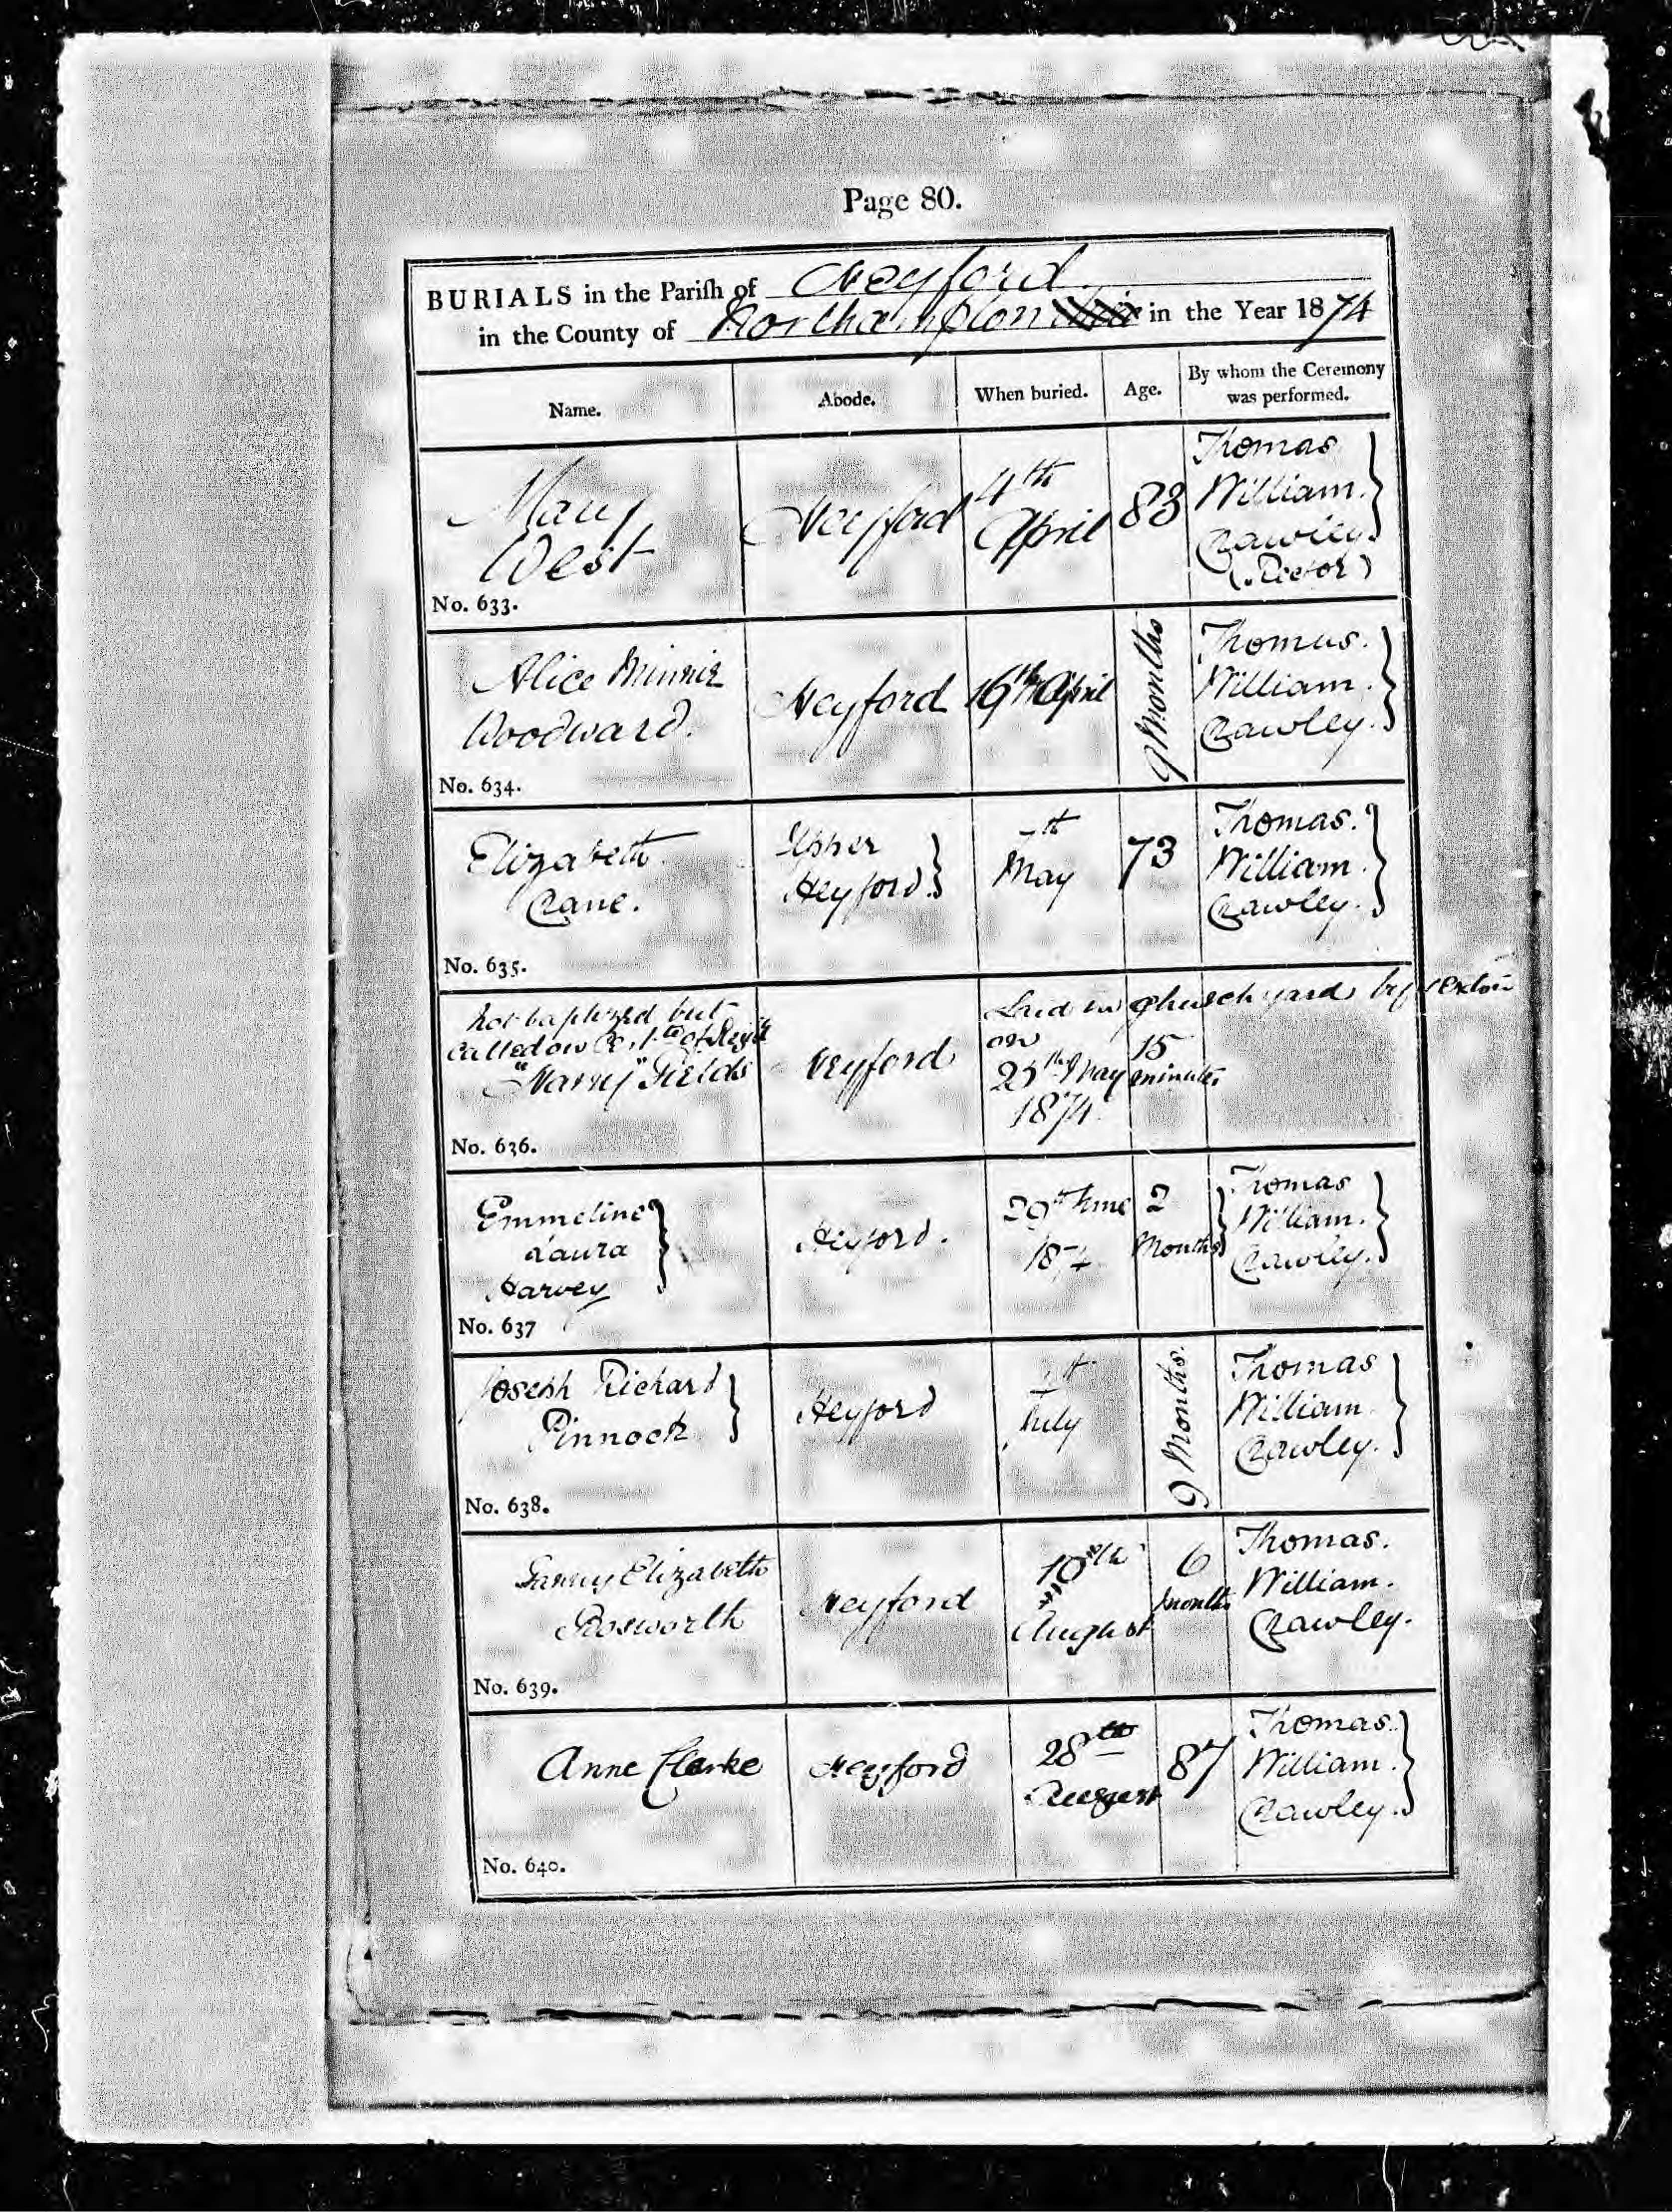 Page 80.
BURIALS in the Parish of Heyford.
in the County of Northampton in the Year 1874
Name. Abode. When buried. Age. By whom the Ceremony was performed.
Mary
West
No. 633.
Heyford
4th
April
83
Thomas
William
Crawley
(Rector)
Alice Minnie
Woodward.
No. 634.
Heyford
April
9 Months
Thomas.
William.
Crawley.
Elizabeth
Crane.
No. 635.
Upper
Heyford.
May
73
Thomas.
William.
Crawley.
Not baptized but
called on
Fields
No. 636.
Heyford
Laid in churchyard by sexton
on
May
1874.
15
minutes
Emmeline
Laura
Harvey
No. 637
Heyford.
29th June
1874
2
Months
Thomas
William.
Crawley.
Joseph Richard
Pinnock
No. 638.
Heyford
July
9 Months.
Thomas
William
Crawley.
Fanny Elizabeth
Bosworth
No. 639.
Heyford
10th
August
6
months
Thomas.
William.
Crawley.
Anne Clarke
No. 640.
Heyford
28th
August
87
Thomas.
William.
Crawley.